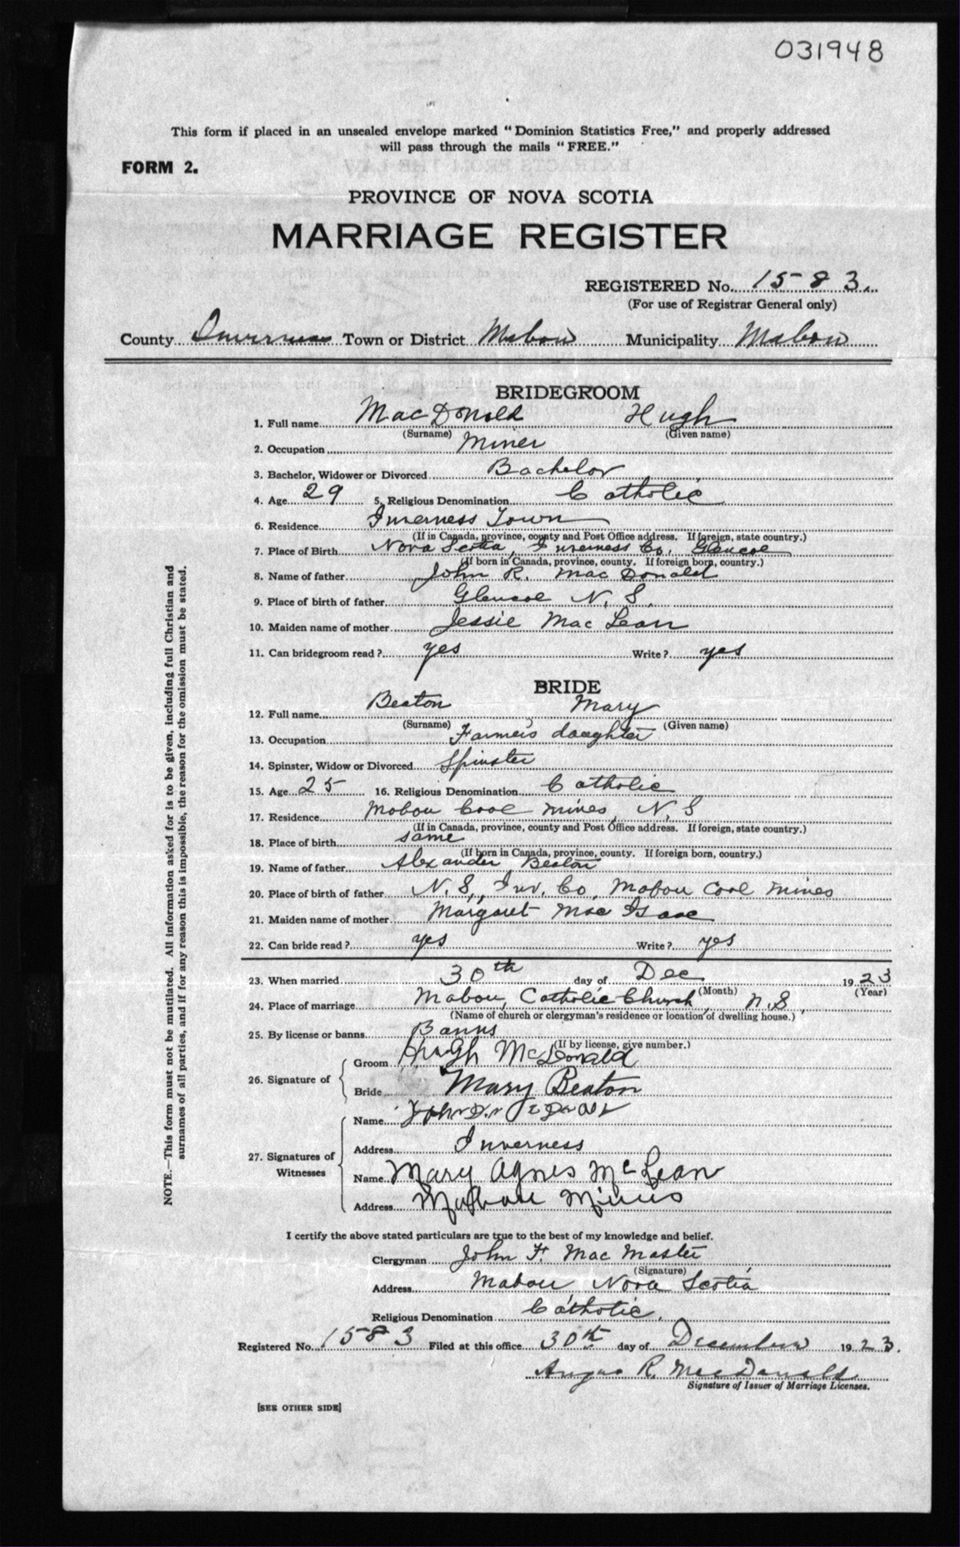 031948
This form if placed in an unsealed envelope marked "Dominion Statistics Free," and properly addressed
will pass through the mails "FREE."
FORM 2.
PROVINCE OF NOVA SCOTIA
MARRIAGE REGISTER
REGISTERED No. 1583.
(For use of Registrar General only)
County Inverness Town or District Mabou Municipality Mabou
BRIDEGROOM
1. Full name MacDonald Hugh
(Surname) (Given name)
2. Occupation Miner
3. Bachelor, Widower or Divorced Bachelor
4. Age 29 5. Religious Denomination Catholic
6. Residence Inverness Town
(If in Canada, province, county and Post Office address. If foreign, state country.)
7. Place of Birth Nova Scotia, Inverness Co. Glencoe
(If born in Canada, province, county. If foreign born, country.)
8. Name of father John R. MacDonald
9. Place of birth of father Glencoe N. S.
10. Maiden name of mother Jessie MacLean
11. Can bridegroom read? yes Write? yes
BRIDE
12. Full name Beaton Mary
(Surname) (Given name)
13. Occupation Farmer's daughter
14. Spinster, Widow or Divorced Spinster
15. Age 25 16. Religious Denomination Catholic
17. Residence Mabou Coal Mines, N. S
(If in Canada, province, county and Post Office address. If foreign, state country.)
18. Place of birth same
(If born in Canada, province, county. If foreign born, country.)
19. Name of father Alexander Beaton
20. Place of birth of father N. S., Inv. Co. Mabou Coal Mines
21. Maiden name of mother Margaret MacIsaac
22. Can bride read? yes Write? yes
23. When married 30th day of Dec 1923
(Month) (Year)
24. Place of marriage Mabou, Catholic Church, N. S,
(Name of church or clergyman's residence or location of dwelling house.)
25. By license or banns Banns
(If by license, give number.)
26. Signature of
Groom Hugh McDonald
Bride Mary Beaton
27. Signatures of Witnesses
Name John
Address Inverness
Name Mary Agnes McLean
Address Mabou Mines
I certify the above stated particulars are true to the best of my knowledge and belief.
Clergyman John F. MacMaster
(Signature)
Address Mabou Nova Scotia
Religious Denomination Catholic.
Registered No. 1583 Filed at this office 30th day of December 1923.
Angus R. MacDonald
Signature of Issuer of Marriage Licenses.
[SEE OTHER SIDE]
NOTE.—This form must not be mutilated. All information asked for is to be given, including full Christian and
surnames of all parties, and if for any reason this is impossible, the reason for the omission must be stated.